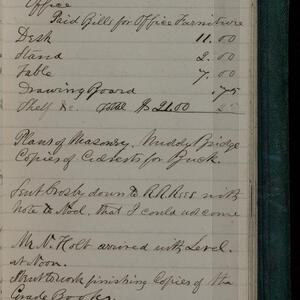 Office
Paid Bills for Office Furniture
Desk 11.00
Stand 2.00
Table 7.00
Drawing Board .75
Shelf &c. $21.00
Plans of Masonry, Muddy Bridge
Copies of Culverts for Buck.
Sent Crosby down to with
Note to Noel, that I could not come
Mr N. Holt arrived with Level.
at Noon.
Went to work finishing Copies of the
Grade Books.